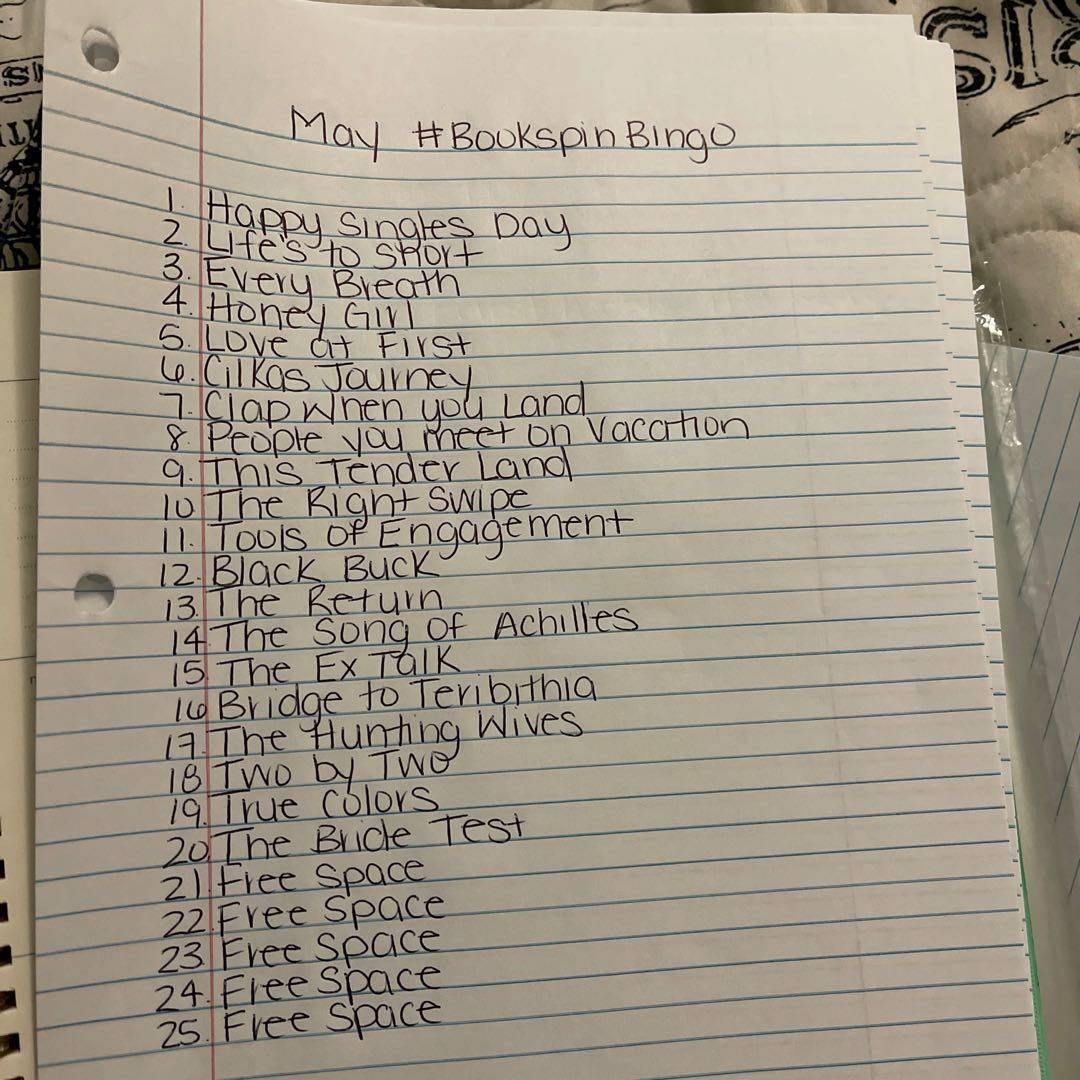 May #BookspinBingo
1. Happy Singles Day
2. Life's to short
3. Every Breath
4. Honey Girl
5. Love at First
6. Cilkas Journey
7. Clap When you Land
8. People you meet on Vacation
9. This Tender Land
10 The Right Swipe
11. Tools of Engagement
12. Black Buck
13. The Return
14 The Song of Achilles
15 The Ex Talk
16 Bridge to Teribithia
17. The Hunting Wives
18 Two by Two
19. True Colors
20 The Bride Test
21. Free Space
22 Free Space
23 Free Space
24. Free Space
25. Free Space